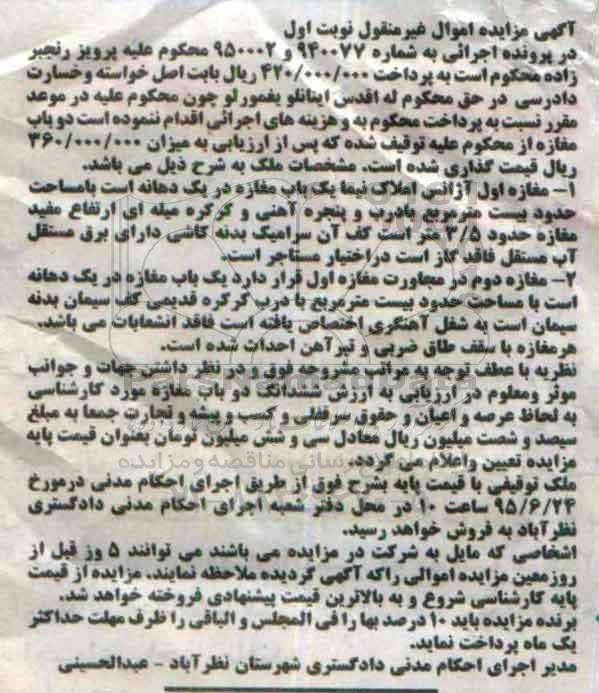 آگهی مزایده اموال غیرمنقول نوبت اول
در پرونده اجرائی به شماره ۹۴۰۰۷۷ و ۹۵۰۰۰۲ محکوم علیه پرویز رنجبر
زاده محکوم است به پرداخت ۴۲۰/۰۰۰/۰۰۰ ریال بابت اصل خواسته وخسارت
دادرسی در حق محکوم له اقدس اینانلو یغمورلو چون محکوم علیه در موعد
مقرر نسبت به پرداخت محکوم به و هزینه های اجرائی اقدام ننموده است دو باب
مغازه از محکوم علیه توقیف شده که پس از ارزیابی به میزان ۳۶۰/۰۰۰/۰۰۰
ریال قیمت گذاری شده است. مشخصات ملک به شرح ذیل می باشد.
۱- مغازه اول آژانس املاک نیما یک باب مغازه در یک دهانه است بامساحت
حدود بیست مترمربع بادرب و پنجره آهنی و کرکره میله ای ارتفاع مفید
مغازه حدود ۳/۵ متر است کف آن سرامیک بدنه کاشی دارای برق مستقل
آب مستقل فاقد گاز است دراختیار مستاجر است.
۲- مغازه دوم در مجاورت مغازه اول قرار دارد یک باب مغازه در یک دهانه
است با مساحت حدود بیست مترمربع با درب کرکره قدیمی کف سیمان بدنه
سیمان است به شغل آهنگری اختصاص یافته است فاقد انشعابات می باشد.
هرمغازه با سقف طاق ضربی و تیرآهن احداث شده است.
نظریه با عطف توجه به مراتب مشروحه فوق و در نظر داشتن جهات و جوانب
موثر ومعلوم در ارزیابی به ارزش ششدانگ دو باب مغازه مورد کارشناسی
به لحاظ عرصه و اعیان و حقوق سرقفلی و کسب و پیشه و تجارت جمعا به مبلغ
سیصد و شصت میلیون ریال معادل سی و شش میلیون تومان بعنوان قیمت پایه
مزایده تعیین واعلام می گردد.
ملک توقیفی با قیمت پایه بشرح فوق از طریق اجرای احکام مدنی درمورخ
۹۵/۶/۲۴ ساعت ۱۰ در محل دفتر شعبه اجرای احکام مدنی دادگستری
نظرآباد به فروش خواهد رسید.
اشخاصی که مایل به شرکت در مزایده می باشند می توانند ۵ وز قبل از
روزمعین مزایده اموالی راکه آگهی گردیده ملاحظه نمایند. مزایده از قیمت
پایه کارشناسی شروع و به بالاترین قیمت پیشنهادی فروخته خواهد شد.
برنده مزایده باید ۱۰ درصد بها را فی المجلس و الباقی را ظرف مهلت حداکثر
یک ماه پرداخت نماید.
مدیر اجرای احکام مدنی دادگستری شهرستان نظرآباد - عبدالحسینی